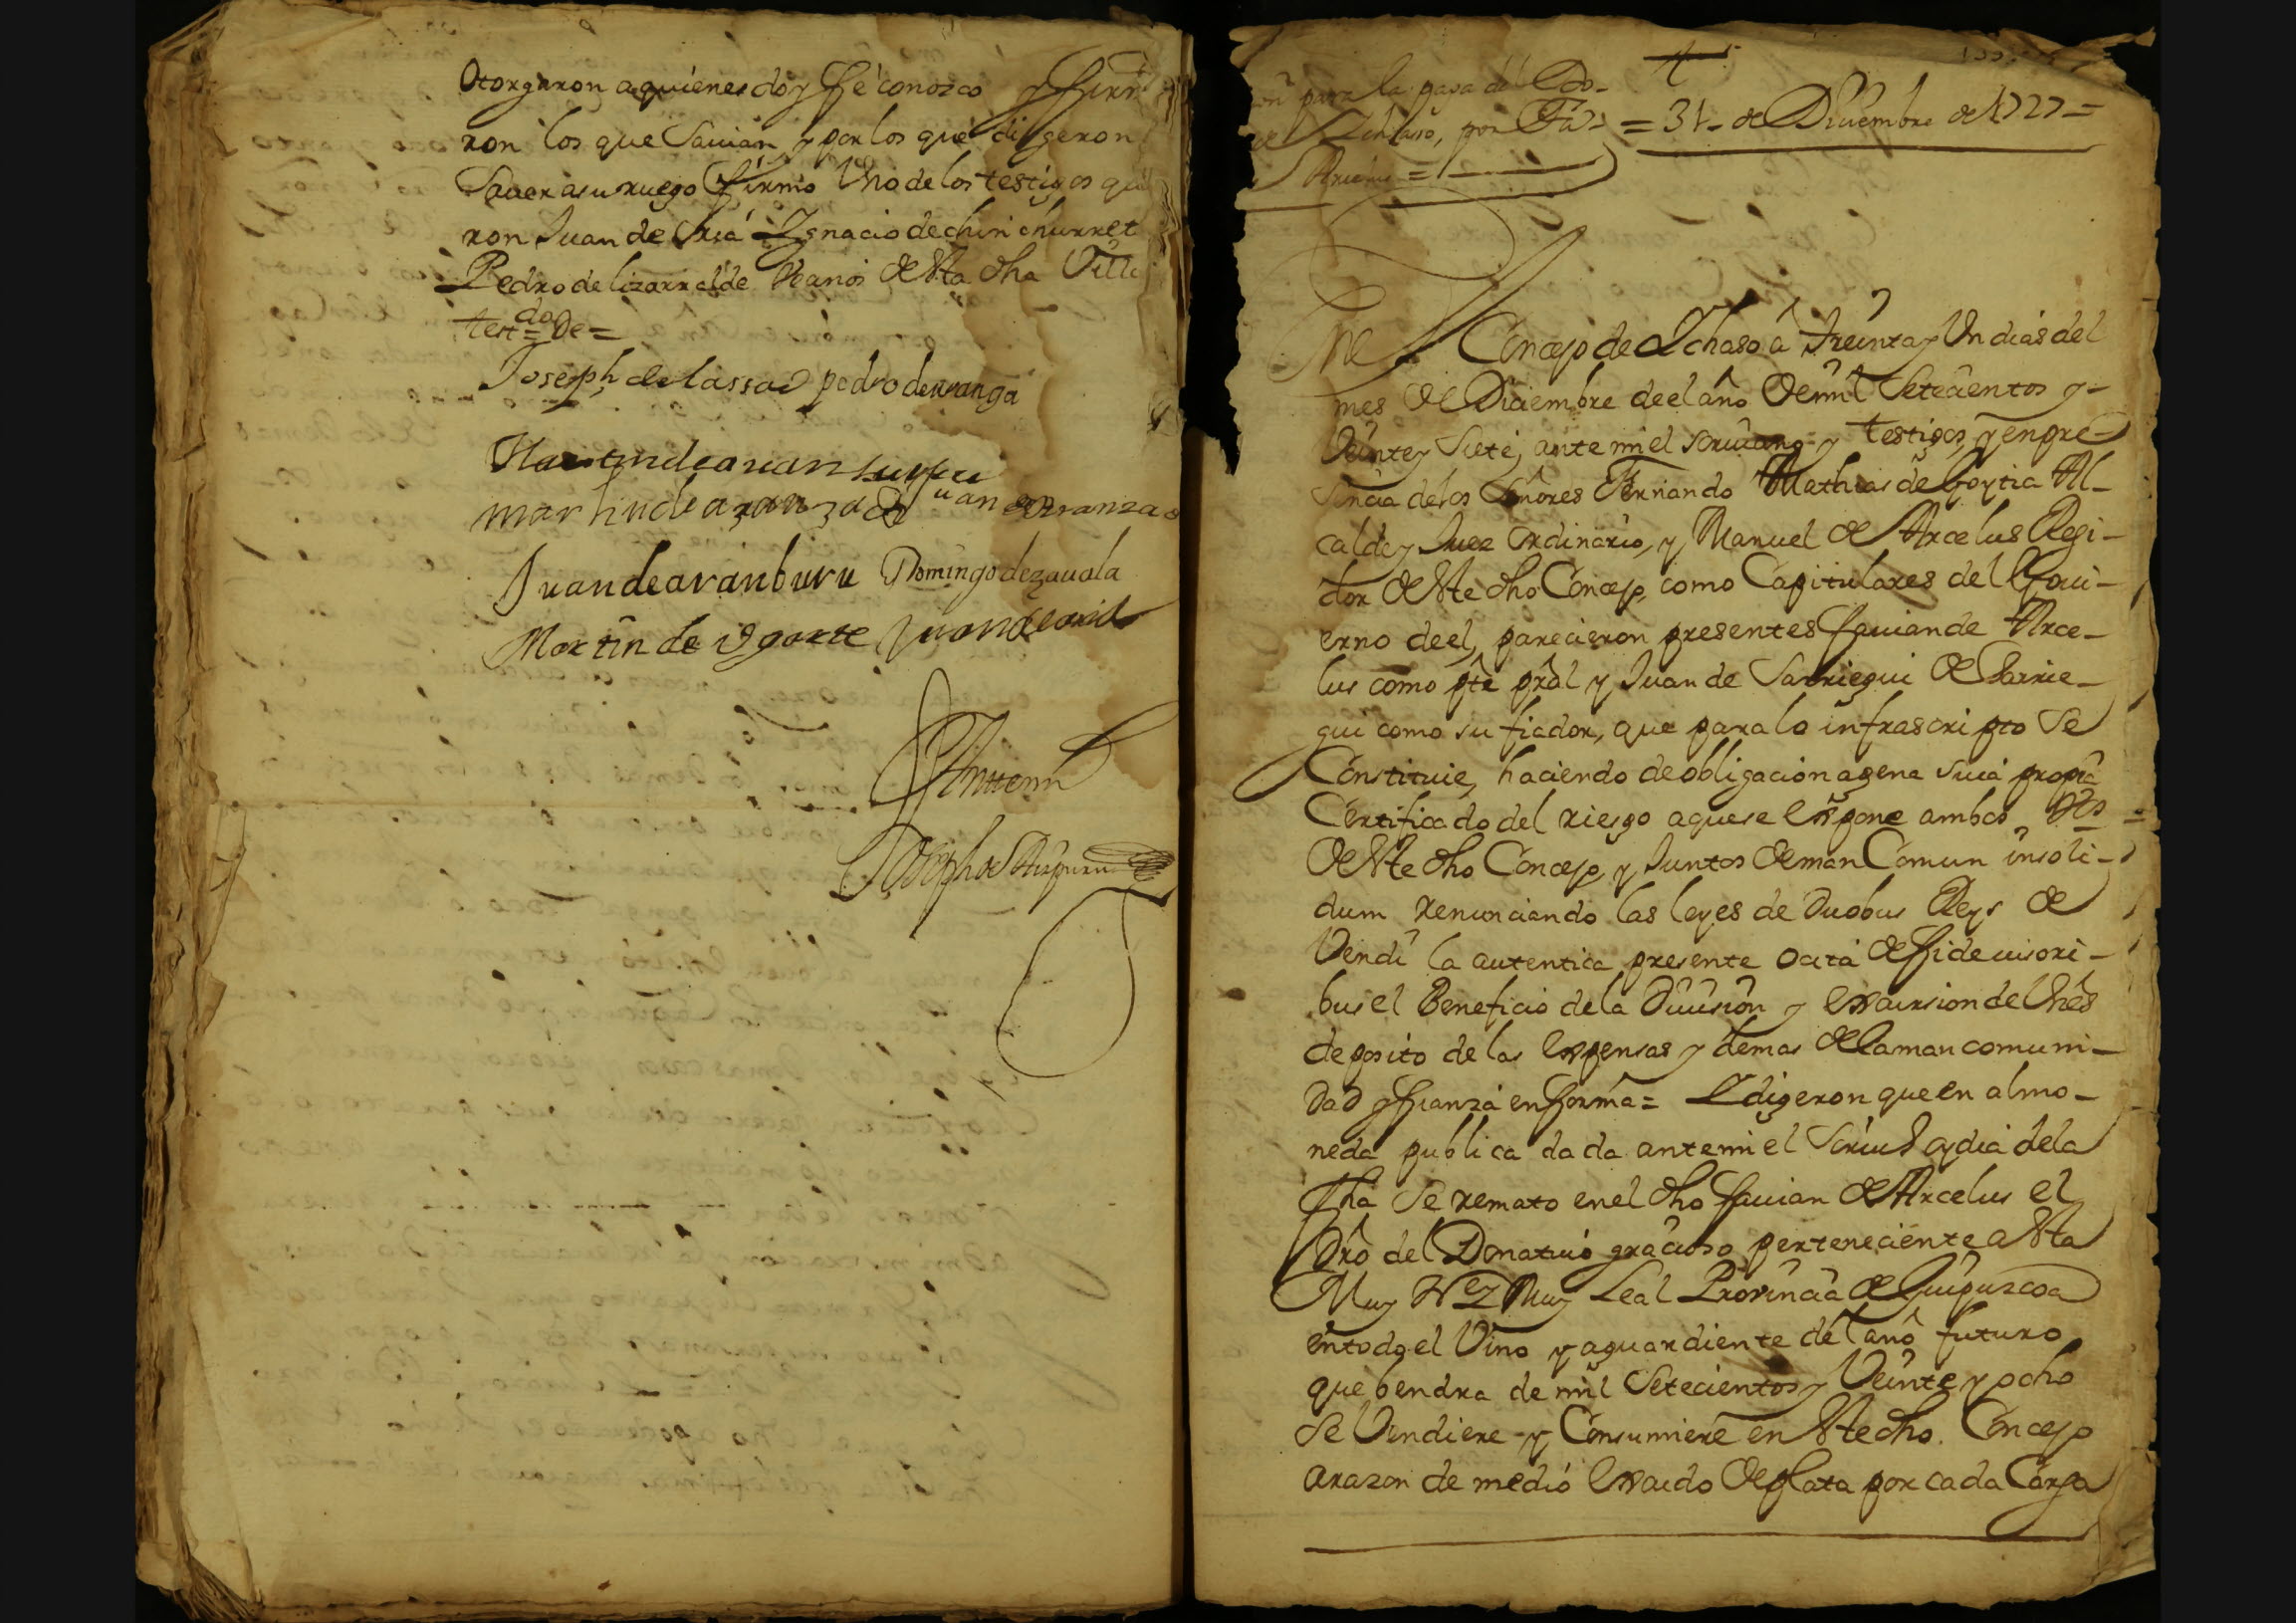 Otorgaron a quienes doy ffè conozco y ffirm
ron los que Savian y por los que digeron
Saver a su ruego ffirmó Uno de los testigos que
ron Juan de Oria Ignacio de chinchurret
Pedro de lizarralde Vez.os de Sta dha Villa
testdo = de =
Joseph de lassa pedro de
Martin de aranburu
martin de aranza Juan de Aranza
Juan de aranburu Domingo de zavala
Martin de Ugarte Juan de oria
Antte mi
Joseph de Aizpuru
para la paga del Do-
Ichaso, por Fa- = 31 - de Diciembre de 1727 =
Arcelus =
Concejo de Ichaso â treinta y Un dias del
mes de Diciembre de el año de mil Setecientos y -
Veinte y Siete, ante mi el scrivano y testigos, y en pre-
sencia de los Señores Fernando Mathias de Goytia Al-
calde y Juez ordinario, y Manuel de Arcelus Regi-
dor de Ste dho Concejo, como Capitulares del Govi-
erno de el, parecieron presentes ffavian de Arce-
lus como pte pral y Juan de Sarriegui de Sarrie-
gui como su fiador, que para lo infrascripto Se
Constituie, haciendo de obligacion agena suia propia
Certificado del riesgo a que se expone ambos vzs =
de Ste dho Concejo y Juntos de man Comun insoli-
dum renunciando las leyes de Duobus Reys de
Vendi la autentica presente ocita de ffideiusori-
bus el Beneficio de la Division y excursion de Vnes
deposito de las expensas y demas de la mancomuni-
dad y ffianza en fforma = Y digeron que en almo-
neda publica dada ante mi el Scrivo oy dia de la
fha Se remato en el dho ffavian de Arcelus el
Dro del Donativo gracioso perteneciente a Sta
Muy N. Y Muy Leal Provincia de Guipuzcoa
en todo el Vino y aguardiente del año futuro
que bendra de mil Setecientos y Veinte y ocho
se Vendiere y Consumiere en Ste dho Concejo
a razon de medio escudo de plata por cada Carga